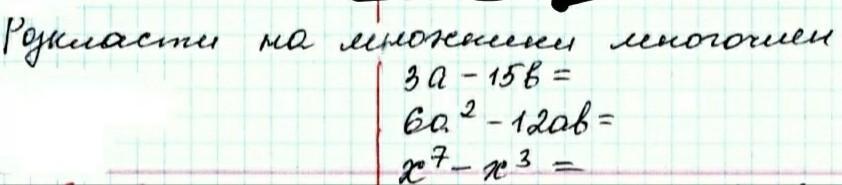 Розкласти на множники многочлен
3a - 15b =
6a² - 12ab =
x⁷ - x³ =